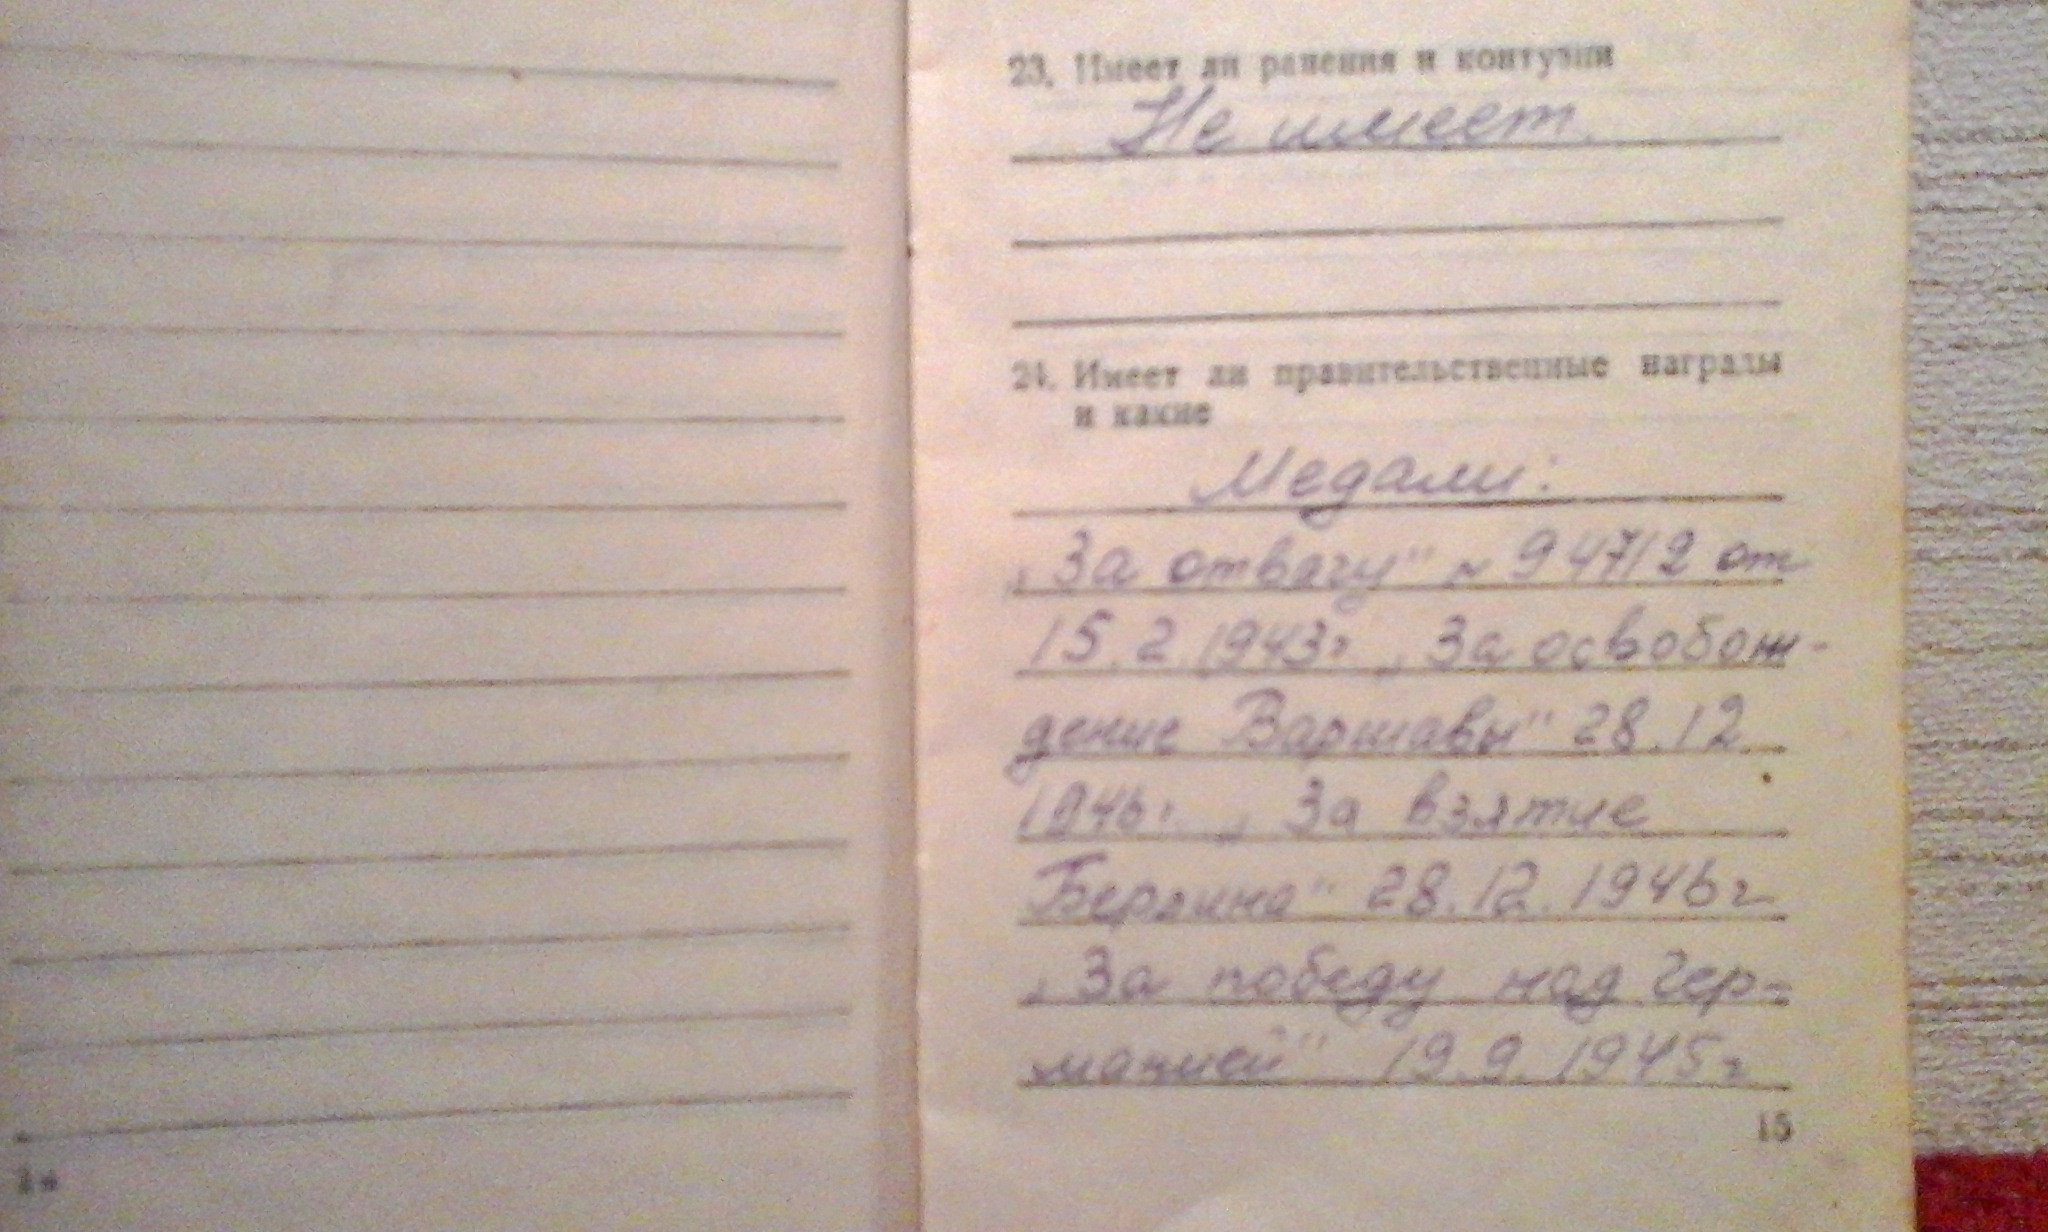 23. Имеет ли ранения и контузии
Не имеет.
24. Имеет ли правительственные награды
и какие
Медали:
„За отвагу" № 94712 от
15.2.1943г. „За освобож-
дение Варшавы" 28.12
1946г. „За взятие
Берлина" 28.12.1946г
„За победу над Гер-
манией" 19.9.1945г
15